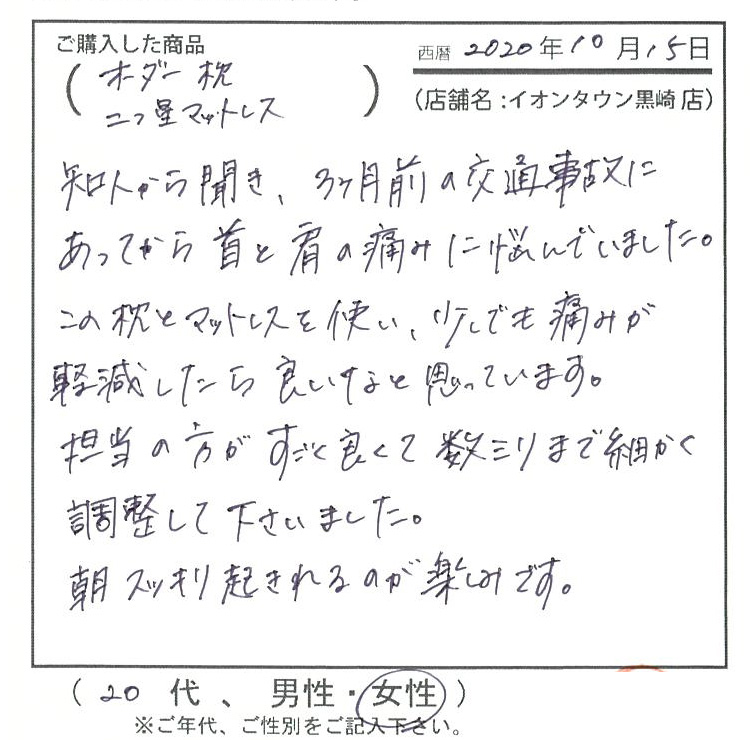 ご購入した商品
西暦 2020年10月15日
(オーダー枕
ニつ星マットレス)
(店舗名:イオンタウン黒崎店)
知人から聞き、3ヶ月前の交通事故に
あってから首と肩の痛みに悩んでいました。
この枕とマットレスを使い、少しでも痛みが
軽減したら良いなと思っています。
担当の方がすごく良くて数ミリまで細かく
調整して下さいました。
朝スッキリ起きれるのが楽しみです。
(20代、男性・女性)
※ご年代、ご性別をご記入下さい。